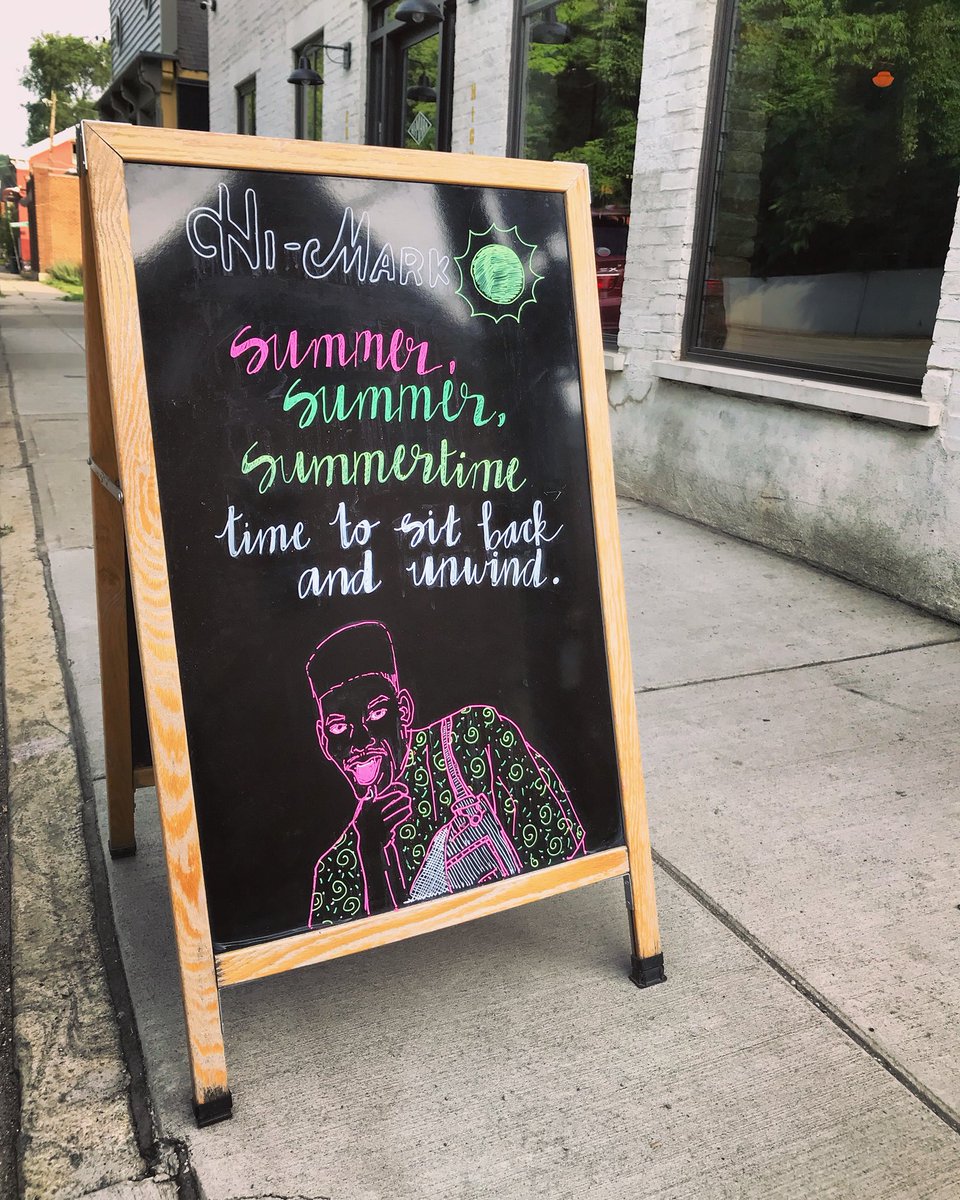 CHi-MARK
summer,
summer,
summertime
time to sit back
and unwind.